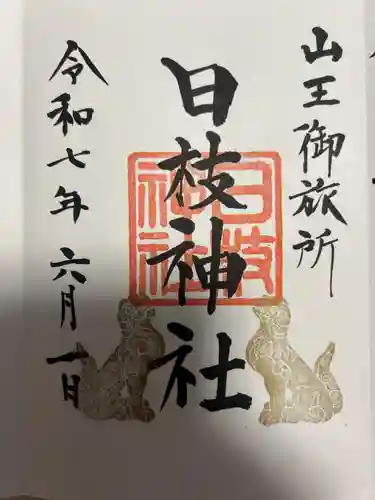 山王御旅所
日枝神社
日枝神社
令和七年 六月一日